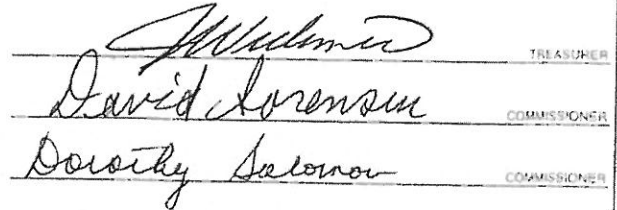 TREASURER
David Sorensen COMMISSIONER
Dorothy Solomon COMMISSIONER